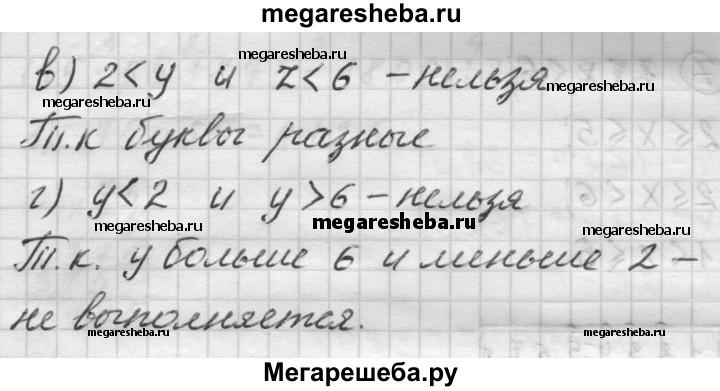 megaresheba.ru
в) 2 < y и z < 6 – нельзя
megaresheba.ru
megaresheba.ru
Т.к буквы разные
г) y < 2 и y > 6 – нельзя
megaresheba.ru
megaresheba.ru
megaresheba.ru
Т.к. y больше 6 и меньше 2 –
megaresheba.ru
не выполняется.
megaresheba.ru
Мегарешеба.ру